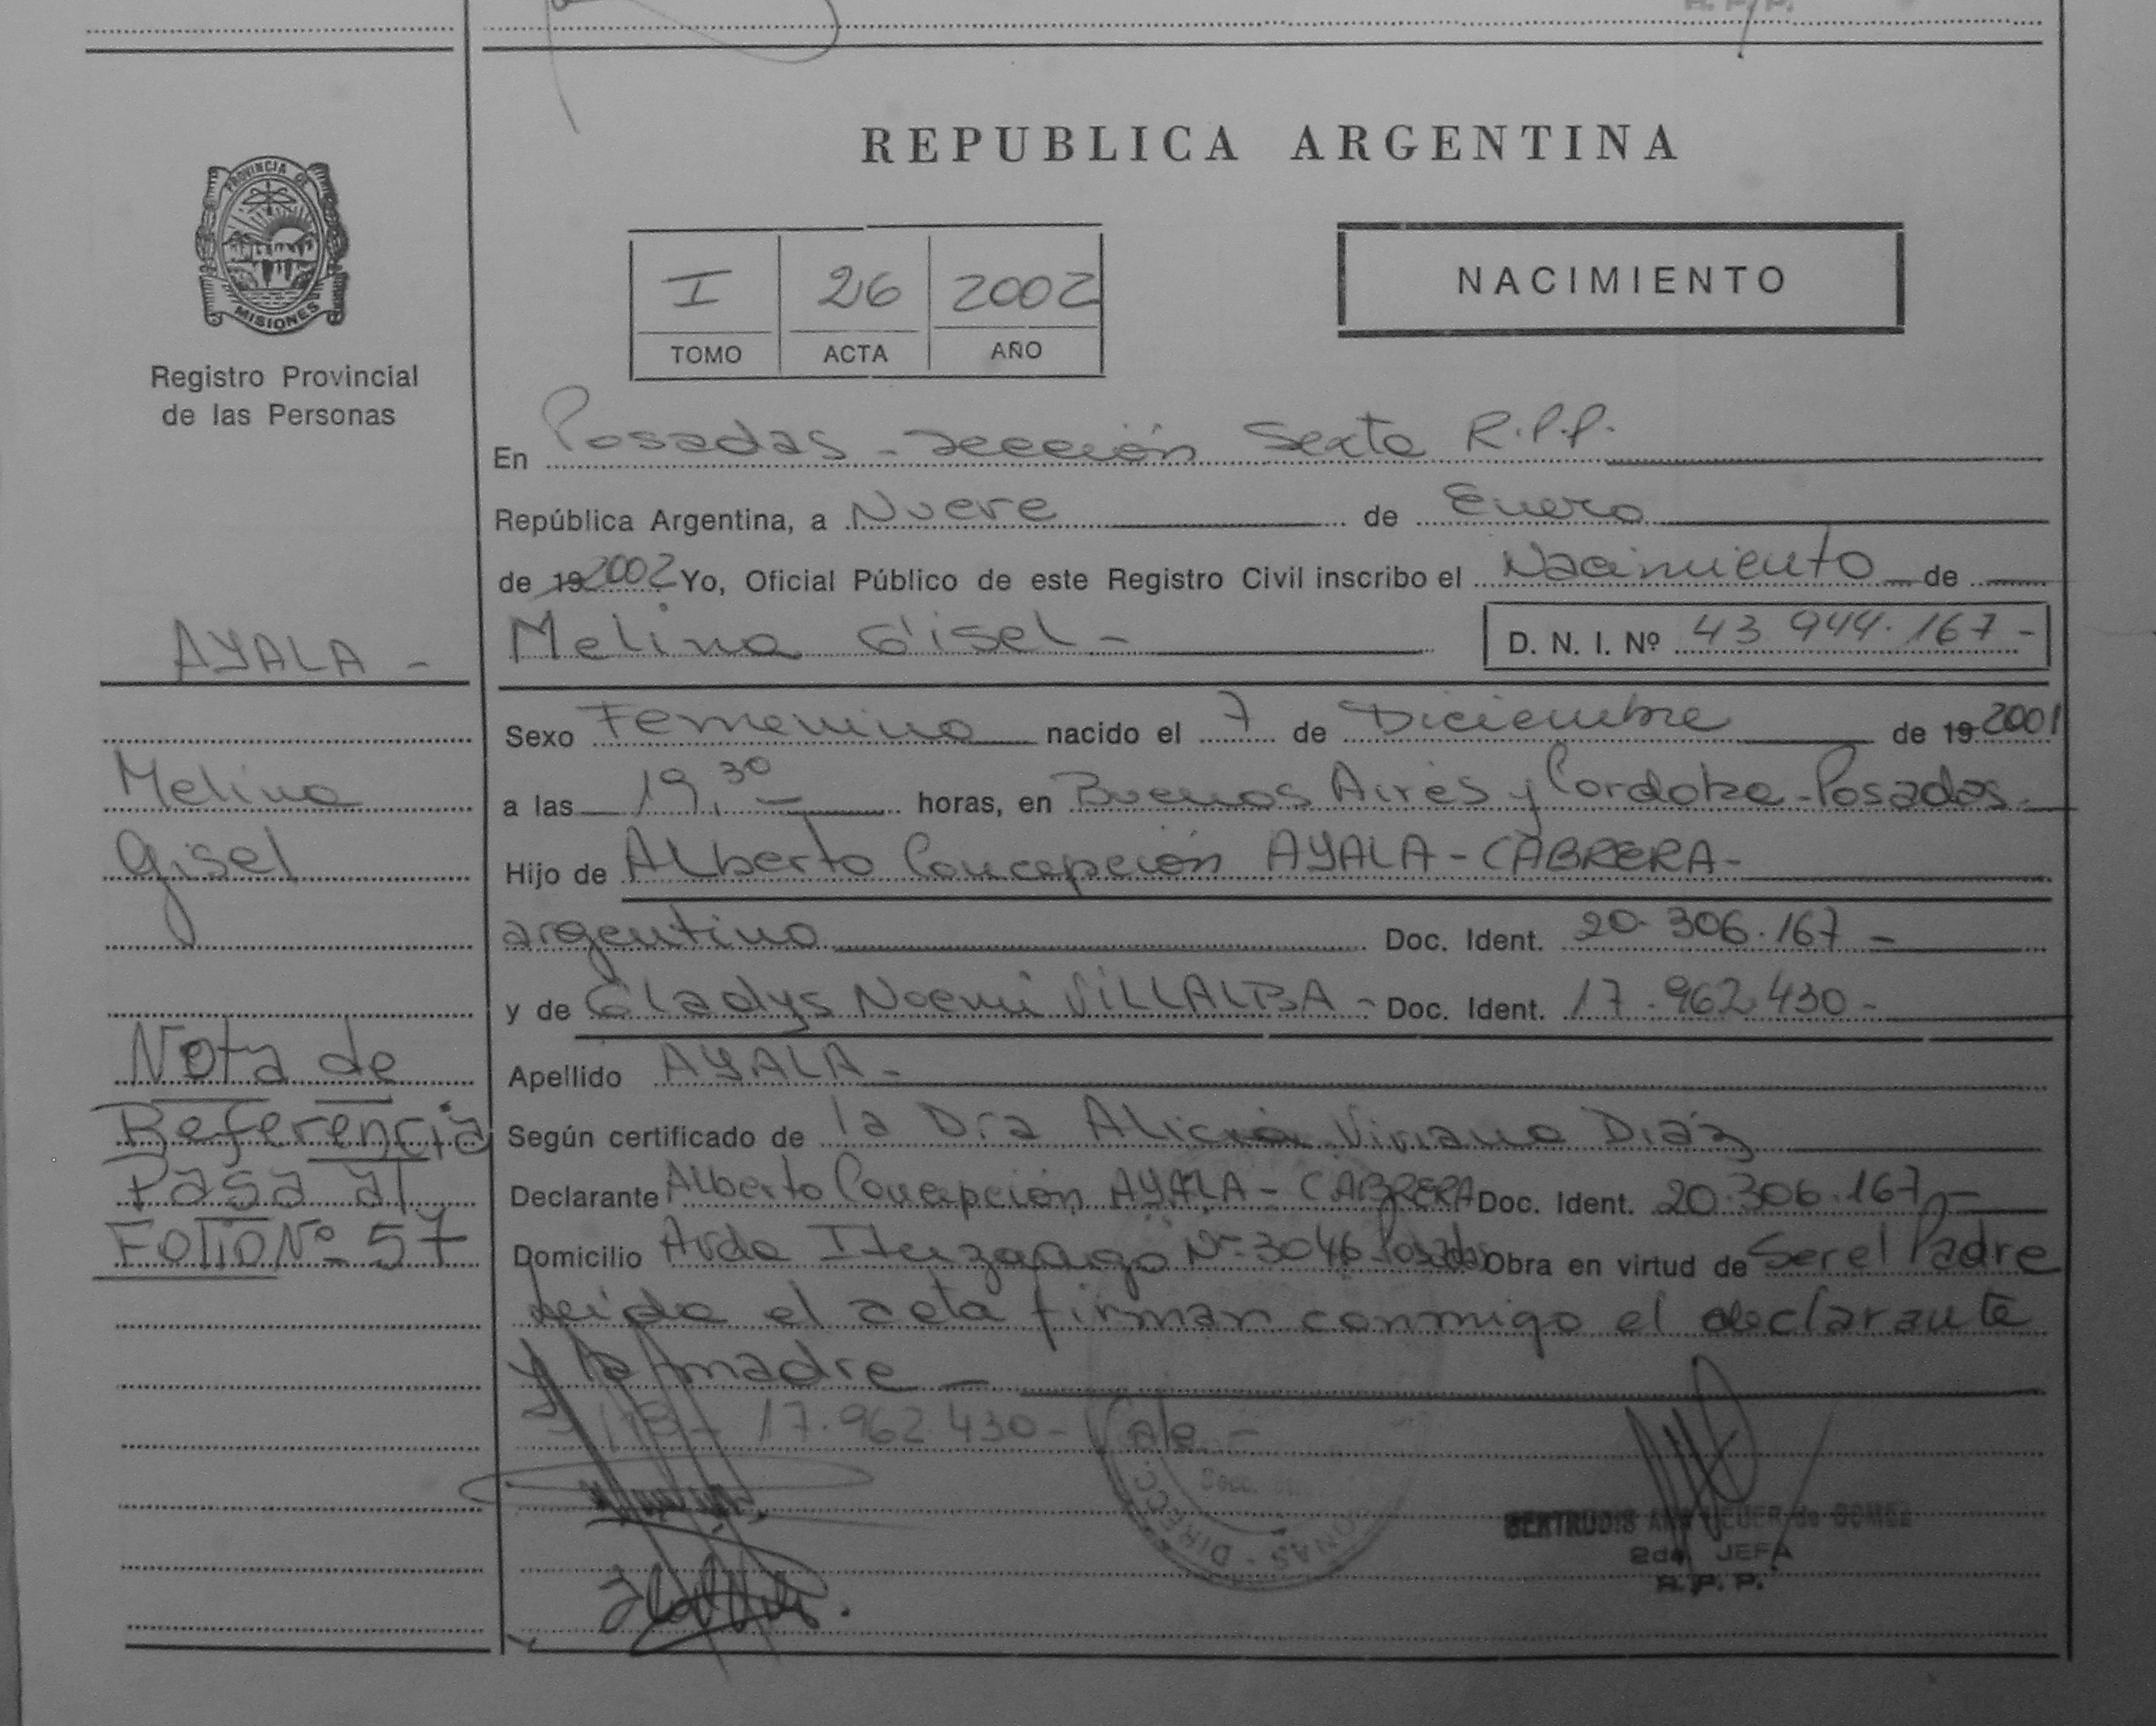 R. P. P.
REPUBLICA ARGENTINA
PROVINCIA DE
MISIONES
Registro Provincial
de las Personas
I 26 2002
TOMO ACTA AÑO
NACIMIENTO
En Posadas - Sección Sexta R.P.P.
República Argentina, a Nueve de Enero
de 19 2002 Yo, Oficial Público de este Registro Civil inscribo el Nacimiento de
Melina Gisel - D. N. I. Nº 43 944.167 -
AYALA -
Melina
Gisel
Sexo Femenino nacido el 7 de Diciembre de 19 2001
a las 19,30 horas, en Buenos Aires y Cordoba - Posadas.
Hijo de Alberto Concepción AYALA - CABRERA -
argentino Doc. Ident. 20.306.167 -
y de Gladys Noemi VILLALBA - Doc. Ident. 17.962.430 -
Apellido AYALA -
Nota de
Referencia
Pasa al
Folio Nº 57
Según certificado de la Dra Alicia Viviana Diáz
Declarante Alberto Concepción AYALA - CABRERA Doc. Ident. 20.306.167 -
Domicilio Avda Ituzaingo Nº 3046 Posadas Obra en virtud de Ser el Padre
Leida el acta firman conmigo el declarante
y la madre -
17.962.430 - Vale -
DIRECC
GERTRUDIS de GOMEZ
2da. JEFA
R. P. P.